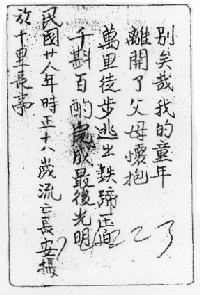 別矣哉我的童年
離開了父母懷抱
萬里徒步逃出鉄蹄正向
千斟百酌 成最後光明
民國廿八年時正十八歲流亡長安攝
於十里長亭